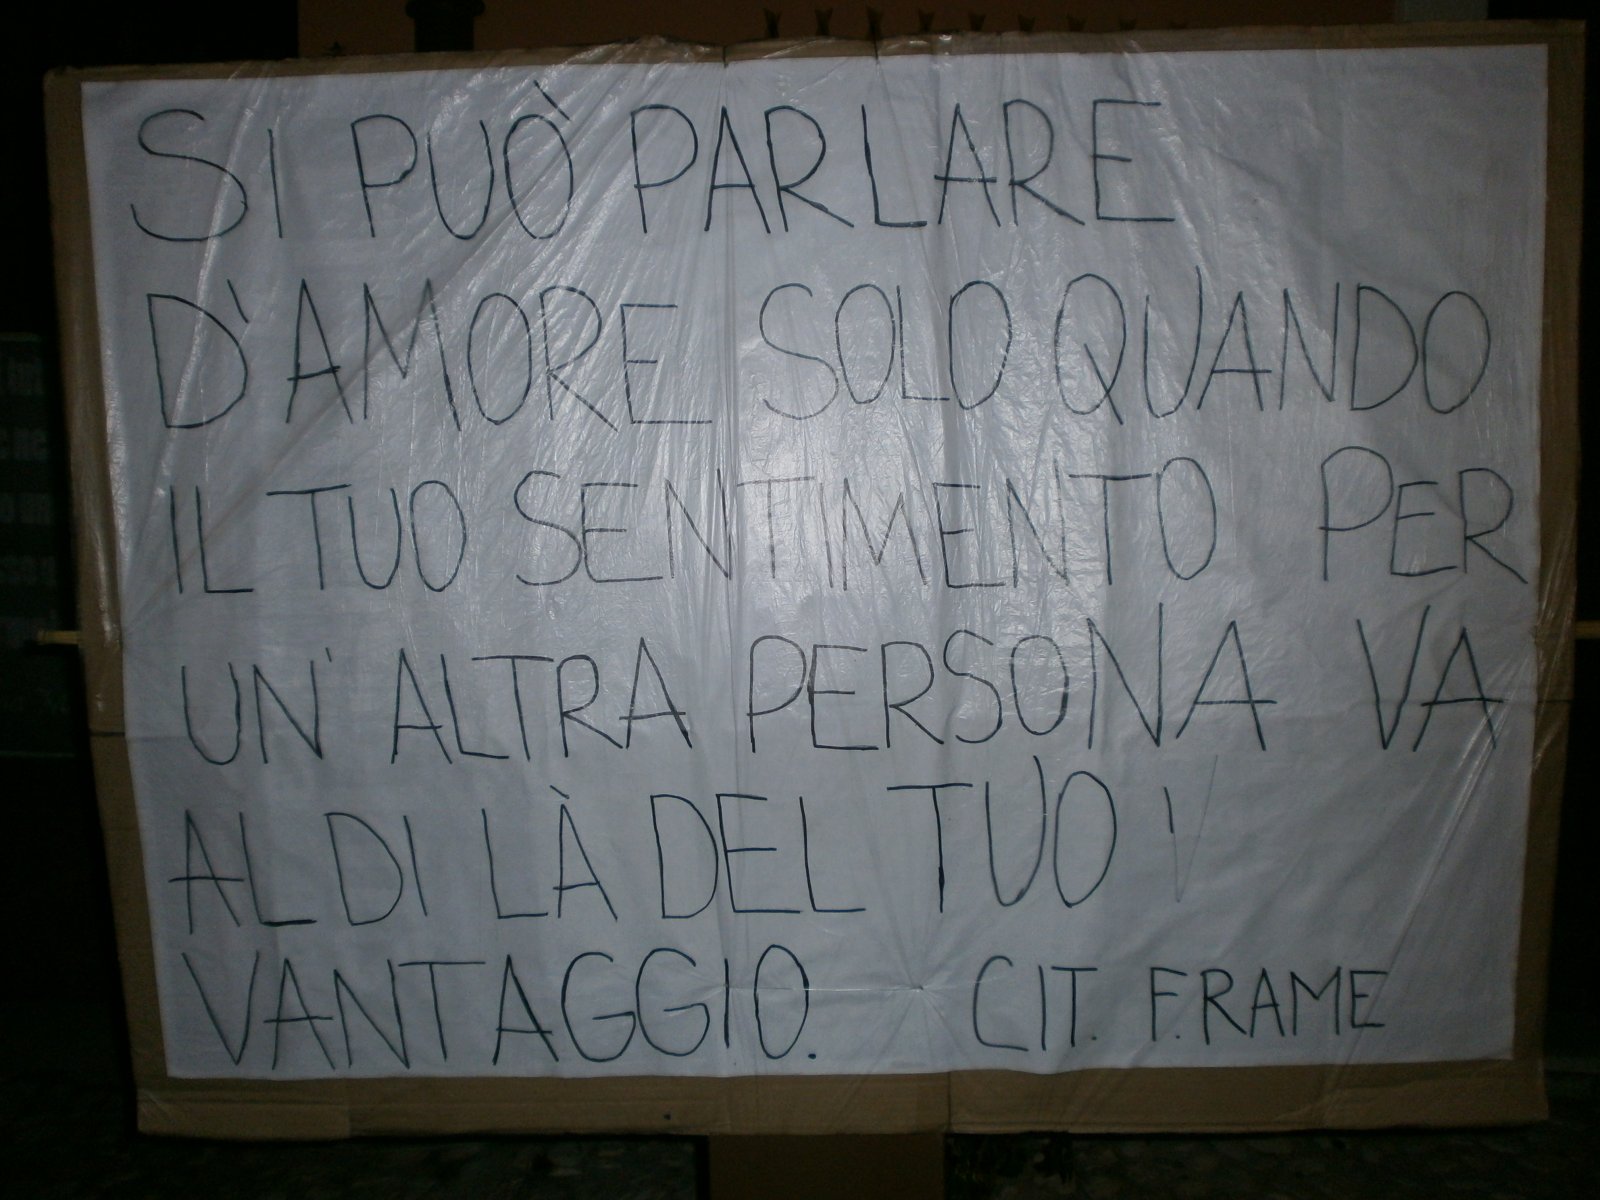 SI PUÒ PARLARE
D'AMORE SOLO QUANDO
IL TUO SENTIMENTO PER
UN'ALTRA PERSONA VA
AL DI LÀ DEL TUO
VANTAGGIO. CIT. F.RAME